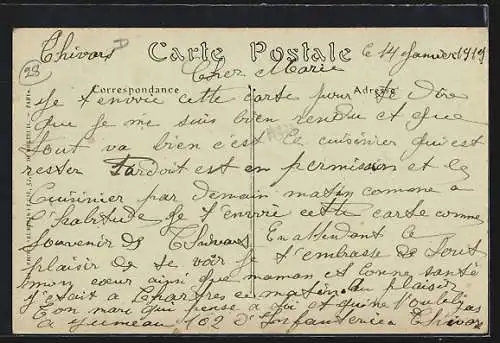 Thivars Carte Postale le 14 Janvier 1919
28
Correspondance Adresse
Cher Marie
Je t'envoie cette carte pour te dire
que je me suis bien rendu et que
tout va bien c'est le cuisinier qui est
rester Tardoit est en permission et le
Cuisinier par demain matin comme a
l'habitude Je t'envoie cette carte comme
souvenir de Thivars En attendant le
plaisir de se voir Je t'embrasse de tout
mon cœur ainsi que maman et bonne santé
j'etait a Chartres ce matin. Au plaisir
Ton mari qui pense a toi et qui ne t'oublie pas
a Jumeau 102 d'Infanterie Thivars